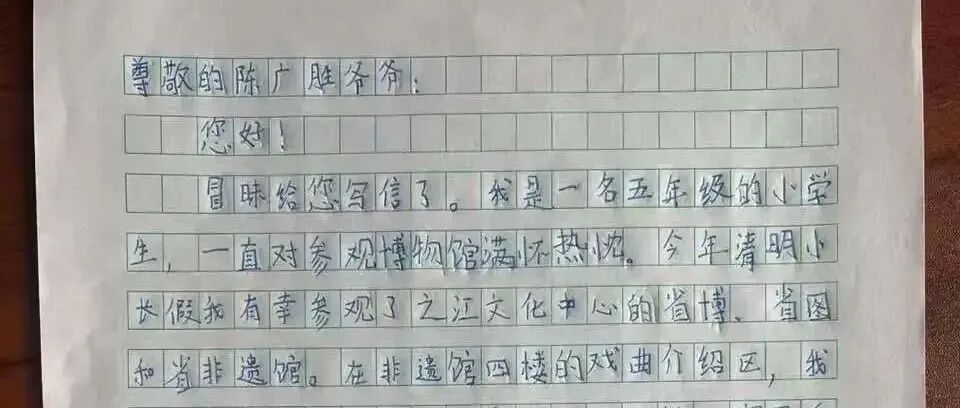 尊敬的陈广胜爷爷：
您好！
冒昧给您写信了。我是一名五年级的小学
生，一直对参观博物馆满怀热忱。今年清明小
长假我有幸参观了之江文化中心的省博、省图
和省非遗馆。在非遗馆四楼的戏曲介绍区，我